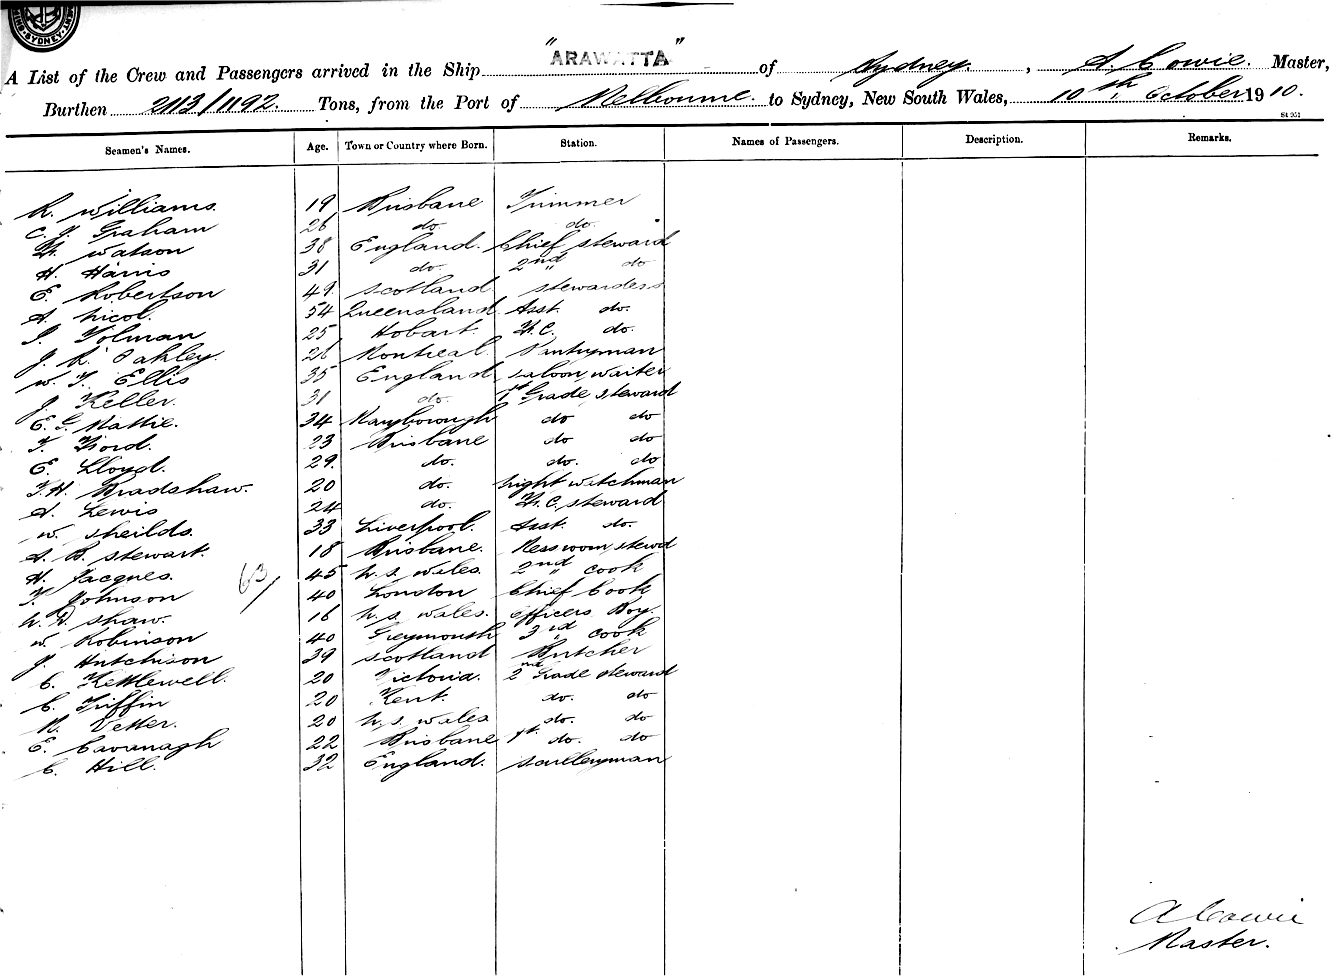 SYDNEY
"ARAWATTA"
A List of the Crew and Passengers arrived in the Ship of Sydney, A. Cowie. Master,
Burthen 2113/1192. Tons, from the Port of Melbourne. to Sydney, New South Wales, 10th October 1910.
St 951
Seamen's Names. Age. Town or Country where Born. Station. Names of Passengers. Description. Remarks.
R. Williams. 19 Brisbane Trimmer
C. J. Graham 26 do. do.
W. Watson 38 England. Chief steward
H. Harris 31 do. 2nd do
E. Robertson 49. Scotland stewardess
A. Nicol. 54 Queensland. Asst. do.
I. Tolman 25 Hobart. F.C. do.
J. R. Oakley. 26 Montreal. Pantryman
W. T. Ellis 35 England saloon waiter
J. Keller. 31 do. 1st Grade steward
E. G. Mattie. 34 Maryborough do do
F. Fiord. 23 Brisbane do do
E. Lloyd. 29. do. do. do
F. H. Bradshaw. 20 do. Night watchman
A. Lewis 24 do. F.C. steward
W. Sheilds. 33 Liverpool. Asst. do.
A. B. Stewart. 18 Brisbane. Messroom stewd
H. Jacques. 45 N.S. Wales. 2nd cook
T. Johnson 40 London Chief Cook
63/
N. D. Shaw. 16 N.S. Wales. Officers Boy.
W. Robinson 40 Greymouth 3rd cook
J. Hutchison 39 Scotland Butcher
C. Kettlewell. 20 Victoria. 2nd Grade steward
C. Tiffin 20 Kent. do. do
R. Vetter. 20 N.S. Wales do. do
E. Cavanagh 22 Brisbane 1st do. do
C. Hill. 32 England. Sculleryman
A Cowie
Master.